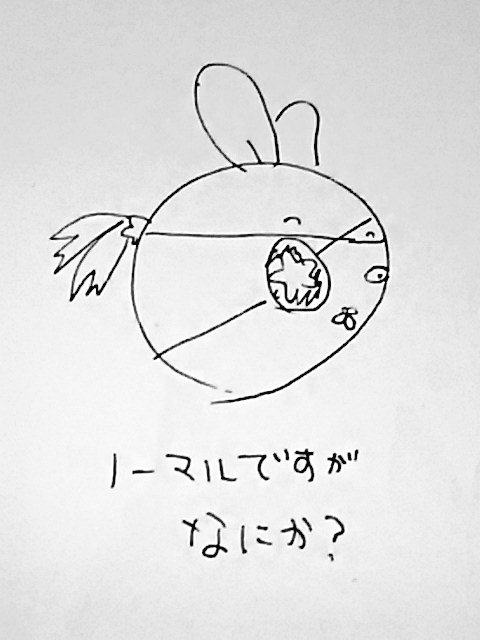 ノーマルですが
なにか?